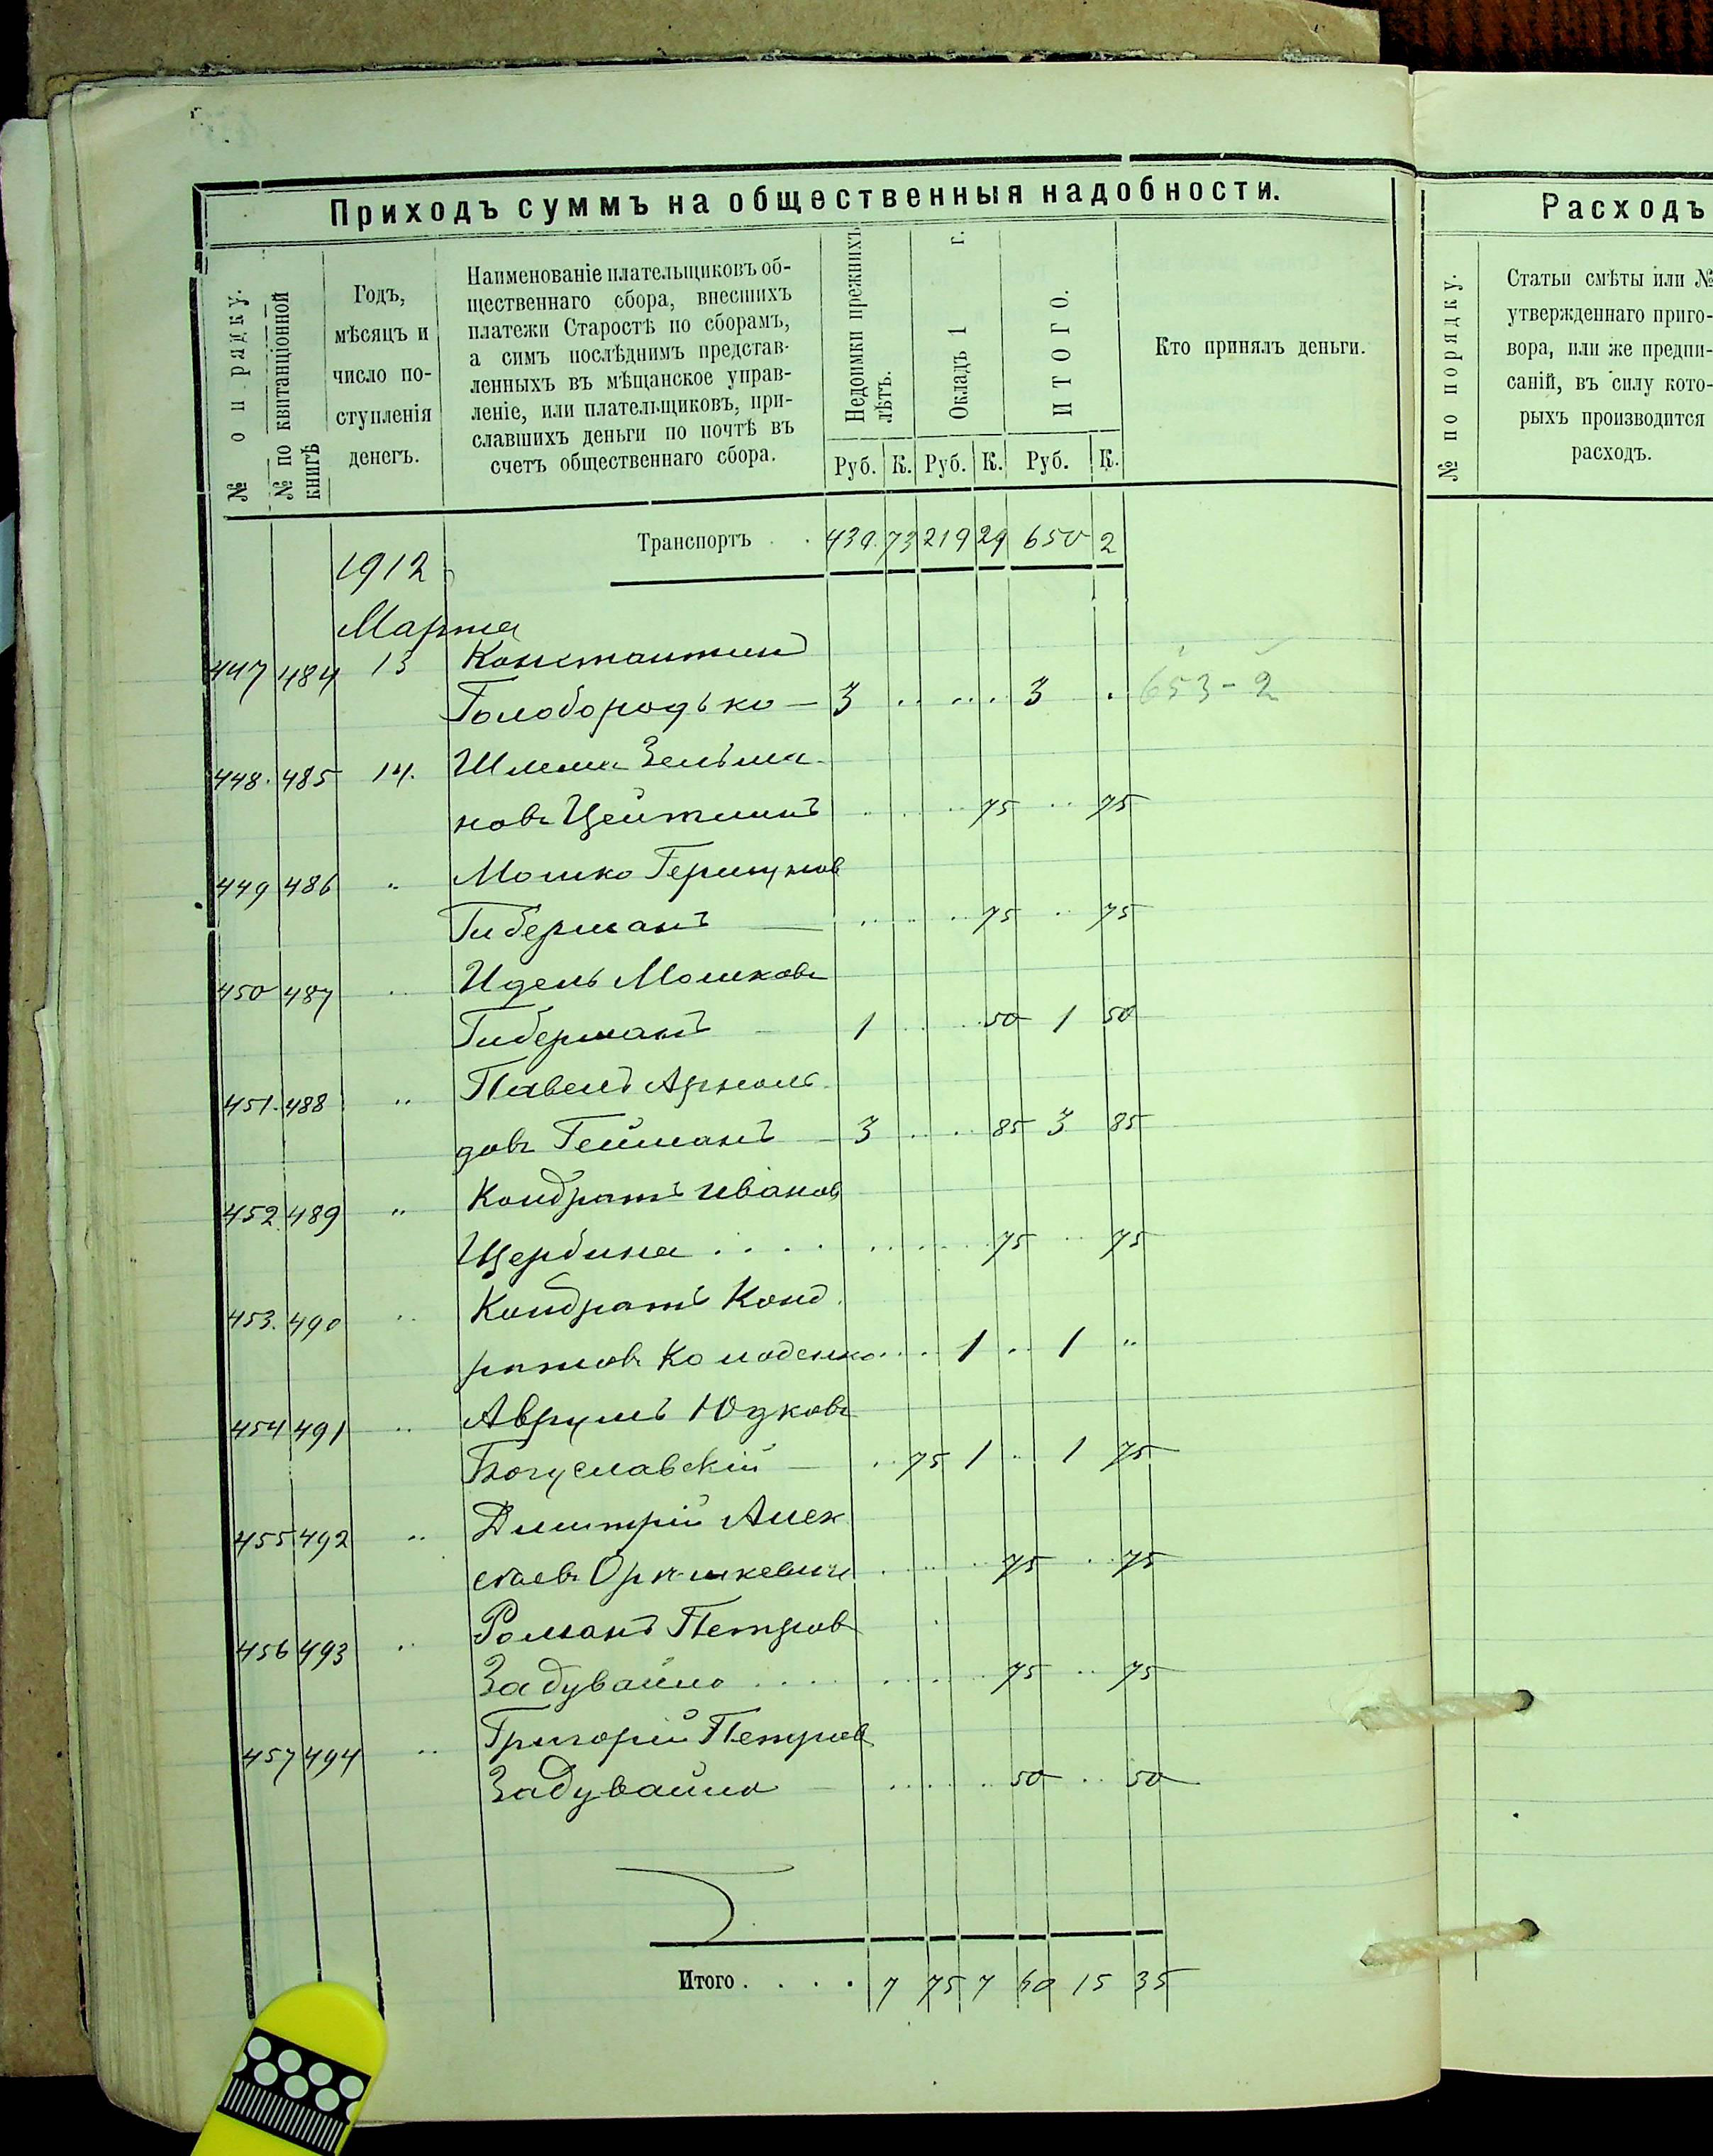 Приходъ суммъ на общественныя надобности.
№ по рядку.
№ по квитанціонной книгѣ
Годъ,
мѣсяцъ и
число по-
ступленія
денегъ.
Наименованіе плательщиковъ об-
щественнаго сбора, внесшихъ
платежи Старостѣ по сборамъ,
а симъ послѣднимъ представ-
ленныхъ въ мѣщанское управ-
леніе, или плательщиковъ, при-
славшихъ деньги по почтѣ въ
счетъ общественнаго сбора.
Недоимки прежнихъ
лѣтъ.
Окладъ 1 г.
ИТОГО.
Руб. К. Руб. К. Руб. К.
Кто принялъ деньги.
Транспортъ . . 430 73 219 29 650 2
1912
Марта
447 484 13 Константинъ
Голобородько — 3 .. .... 3 . 653-2
448. 485 14. Шлема Зельма-
новъ Цейтлинъ 75 75
449 486 " Мошко Гершунов
Гиберманъ — 75 75
450 487 " Идель Мошковъ
Гиберманъ — 1 50 1 50
451. 488 " Павелъ Арноль-
довъ Гейманъ — 3 85 3 85
452. 489 " Кондратъ Иванов
Щербина . . . . 75 75
453. 490 " Кондратъ Конд-
ратовъ Колоденко 1 .. 1 "
454 491 " Аврумъ Юдковъ
Богуславскій — 75 1 .. 1 75
455 492 " Дмитрій Алек
75 75
456 493 " Романъ Петров
Задувайло . . . . 75 75
457 494 " Григорій Петров
Задувайло — 50 50
Итого . . . . 7 75 7 60 15 35
Расходъ
№ по порядку.
Статьи смѣты или №
утвержденнаго приго-
вора, или же предпи-
саній, въ силу кото-
рыхъ производится
расходъ.